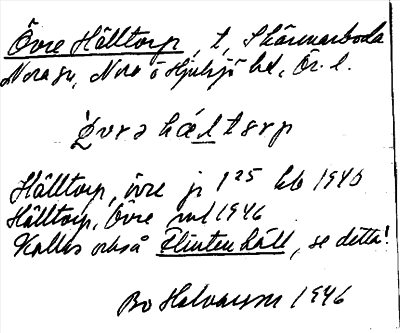 Övre Hålltorp, t, Skärmarboda
Nora sn, Nora o Hjulsjö bd, Ör. l.
Hålltorp, övre jr 1²⁵ hb 1940
Hålltorp, Övre ml 1946
Kallas också Flintenhåll, se detta!
Bo Halvarsson 1946